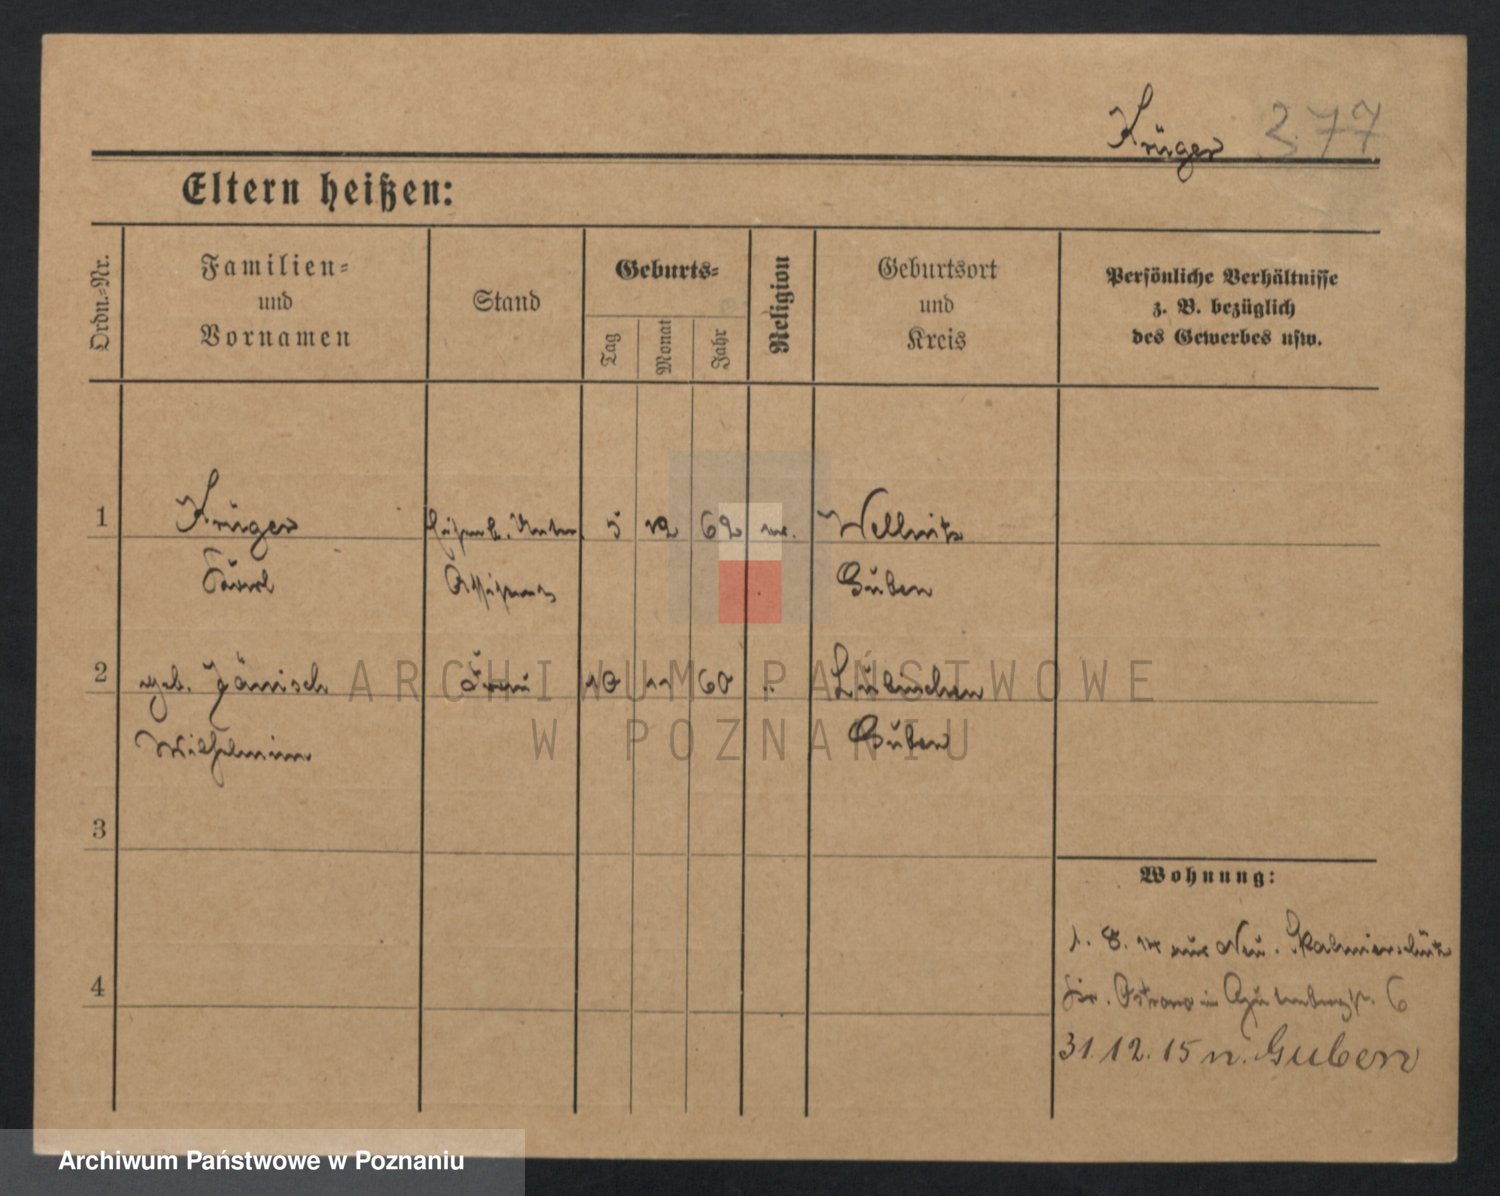 Krüger 377
Eltern heißen:
Ordn.-Nr.
Familien-
und
Vornamen
Stand
Geburts-
Tag
Monat
Jahr
Religion
Geburtsort
und
Kreis
Persönliche Verhältnisse
z. B. bezüglich
des Gewerbes usw.
1 Krüger 5 12 62 Wellmitz
Karl Assistent Guben
2 geb. Jänisch Frau 10 11 60 "
Wilhelmine Guben
3
4
Wohnung:
1. 8. aus Neu. Skalmierschütz
Kr. Ostrowo in 6
31.12.15 n. Guben
ARCHIWUM PAŃSTWOWE
W POZNANIU
Archiwum Państwowe w Poznaniu